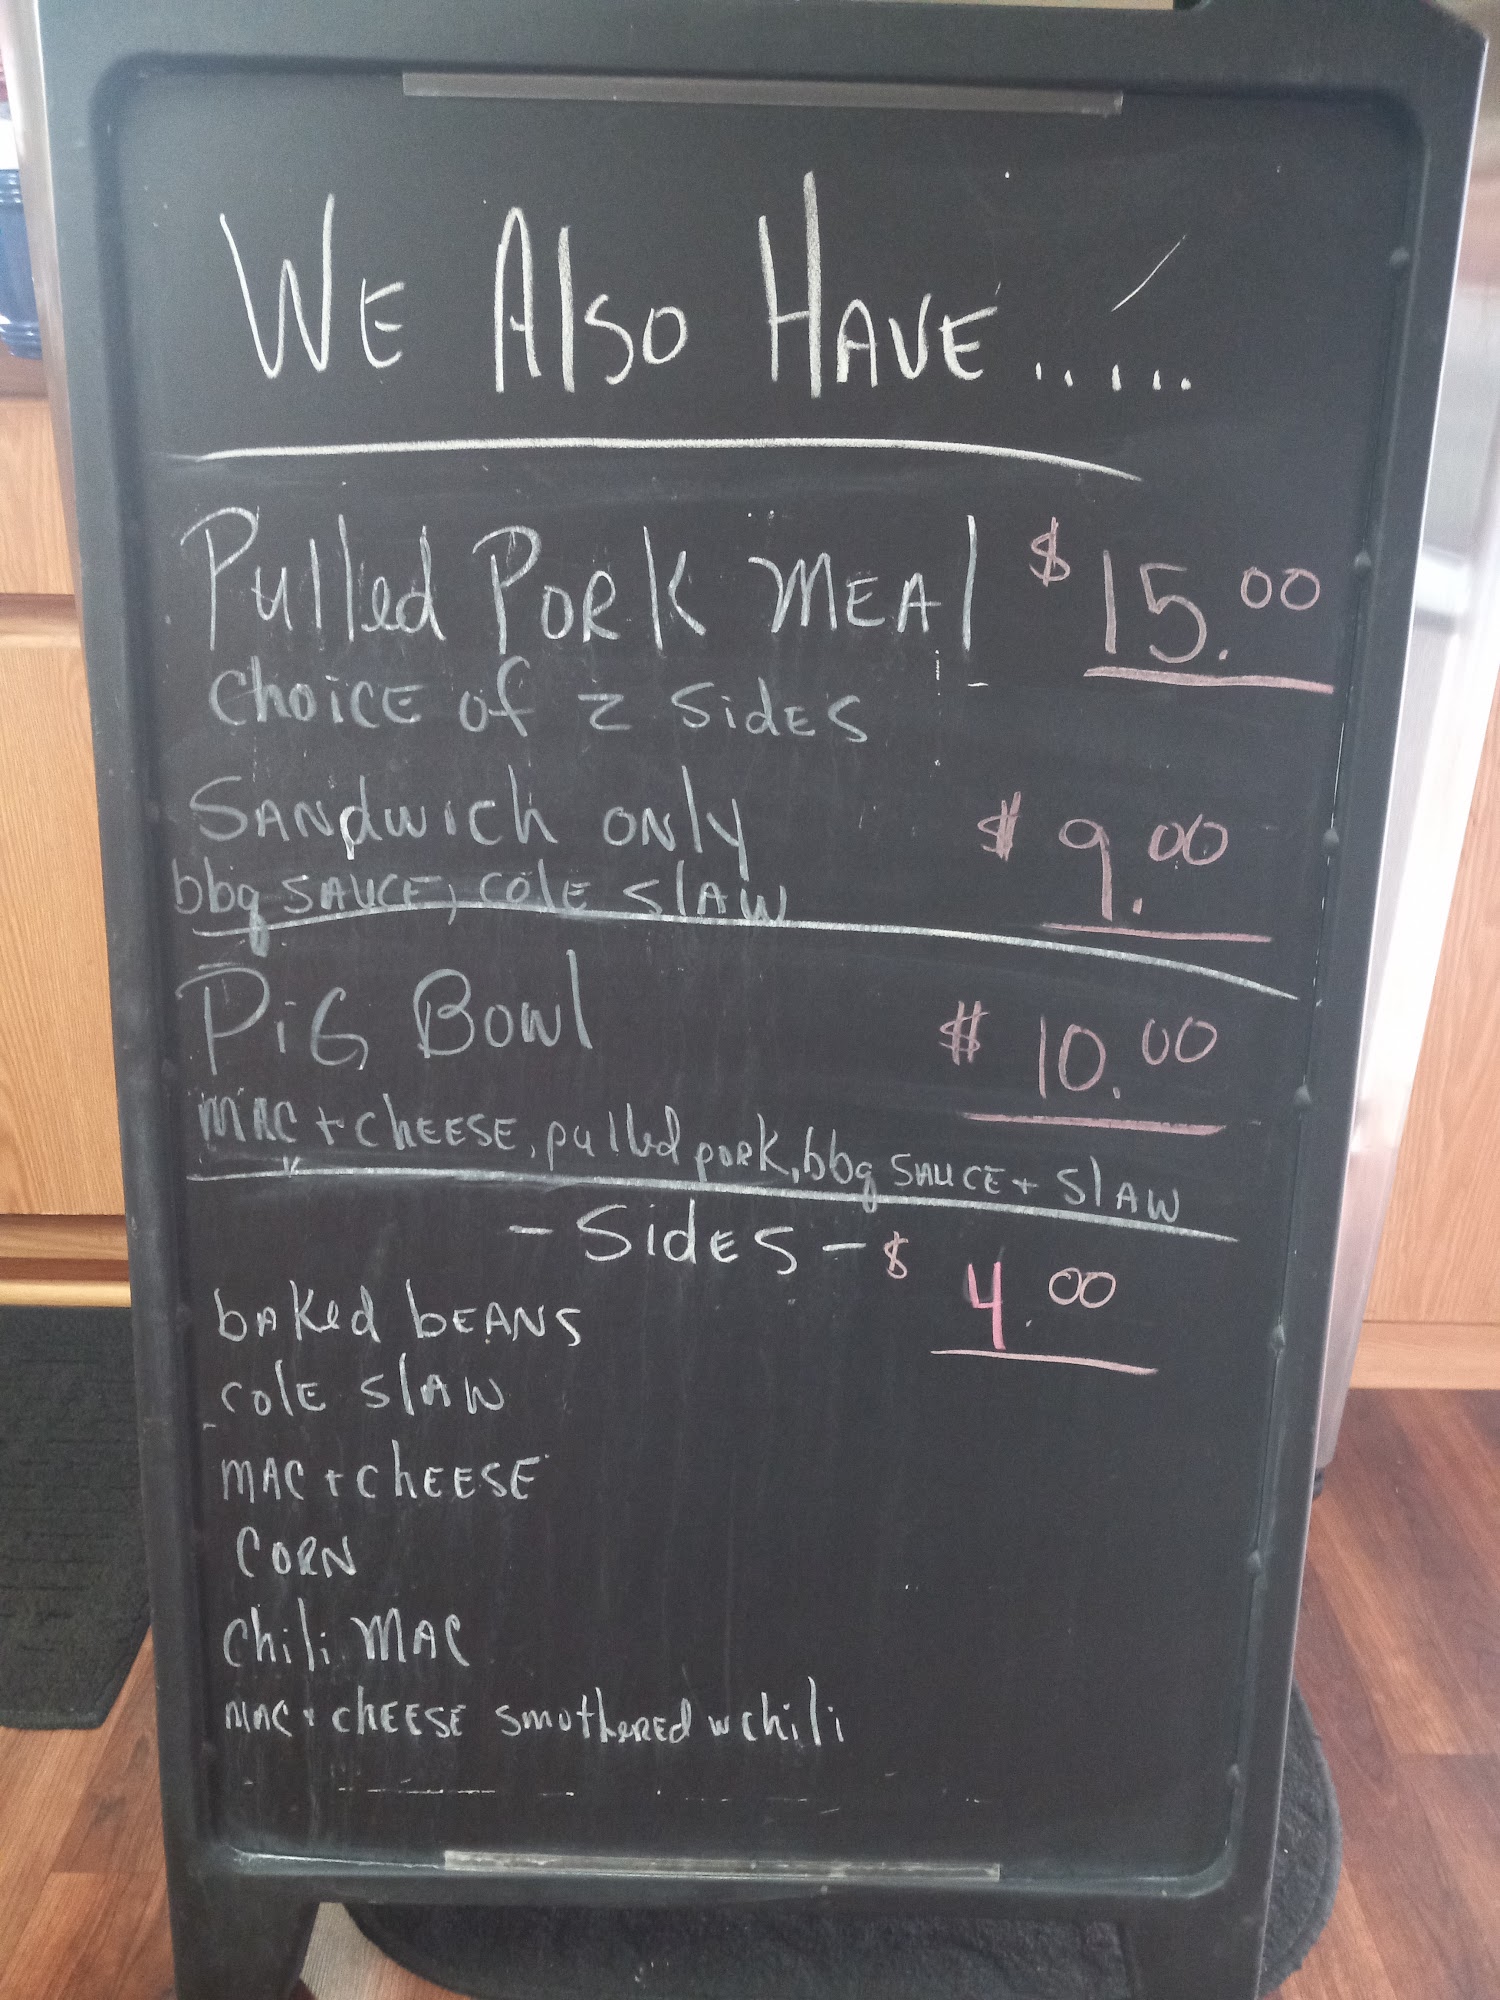 WE Also HAVE.....
Pulled PORK MEAl $15.00
Choice of 2 Sides
Sandwich only $9.00
bbq SAUCE, cole slaw
PiG Bowl $10.00
MAC + ChEESE, pulled pork, bbq SAUCE + Slaw
- Sides - $4.00
baked beans
cole slaw
MAC + ChEESE
CORN
Chili MAC
MAC + ChEESE smothered w chili